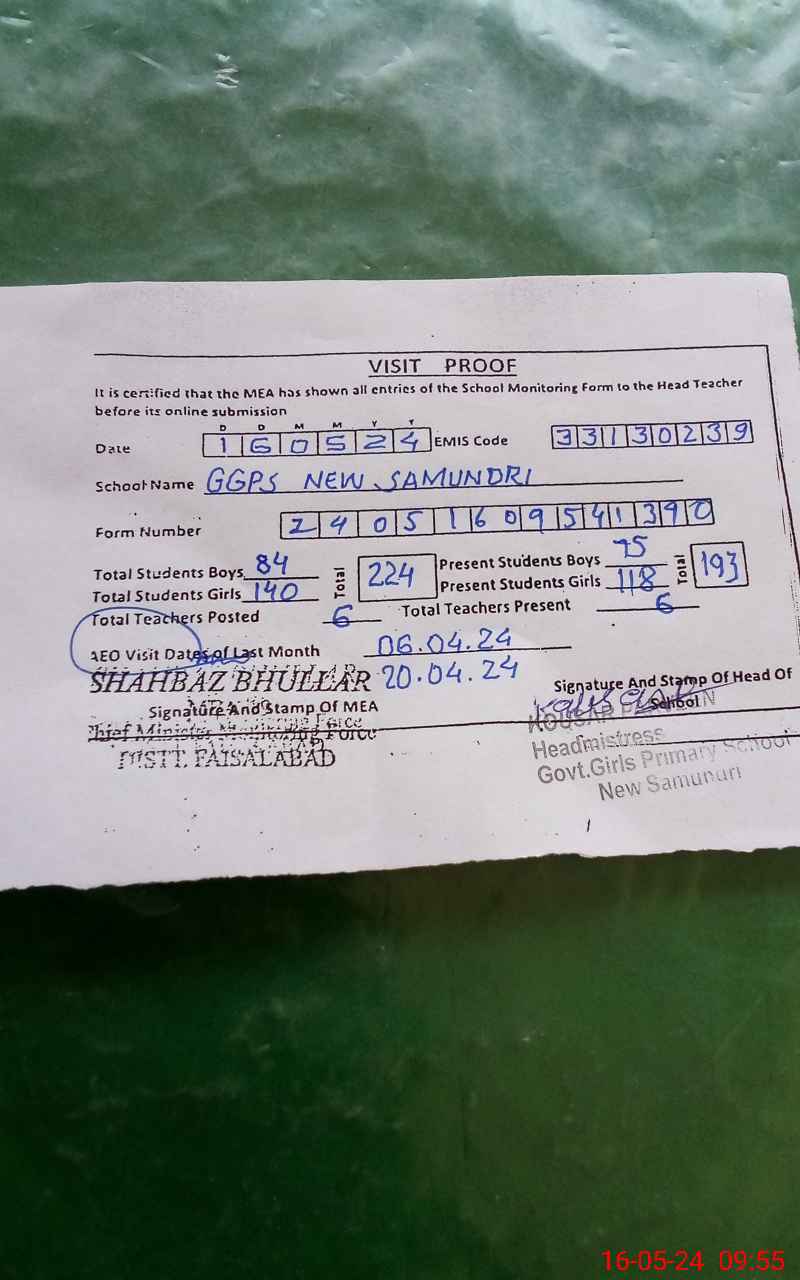 VISIT PROOF
It is certified that the MEA has shown all entries of the School Monitoring Form to the Head Teacher
before its online submission
D D M M Y Y
Date 160524 EMIS Code 33130239
School Name GGPS NEW SAMUNDRI
Form Number
Total Students Boys 84 Total 224 Present Students Boys 75 Total 193
Total Students Girls 140 Present Students Girls 118
Total Teachers Posted 6 Total Teachers Present 6
AEO Visit Dates of Last Month 06.04.24
20.04.24
SHAHBAZ BHULLAR
Signature And Stamp Of MEA
Chief Minister Monitoring Force
DISTT. FAISALABAD
Signature And Stamp Of Head Of
School
KOUSAR
Headmistress
Govt.Girls Primary School
New Samundri
16-05-24 09:55